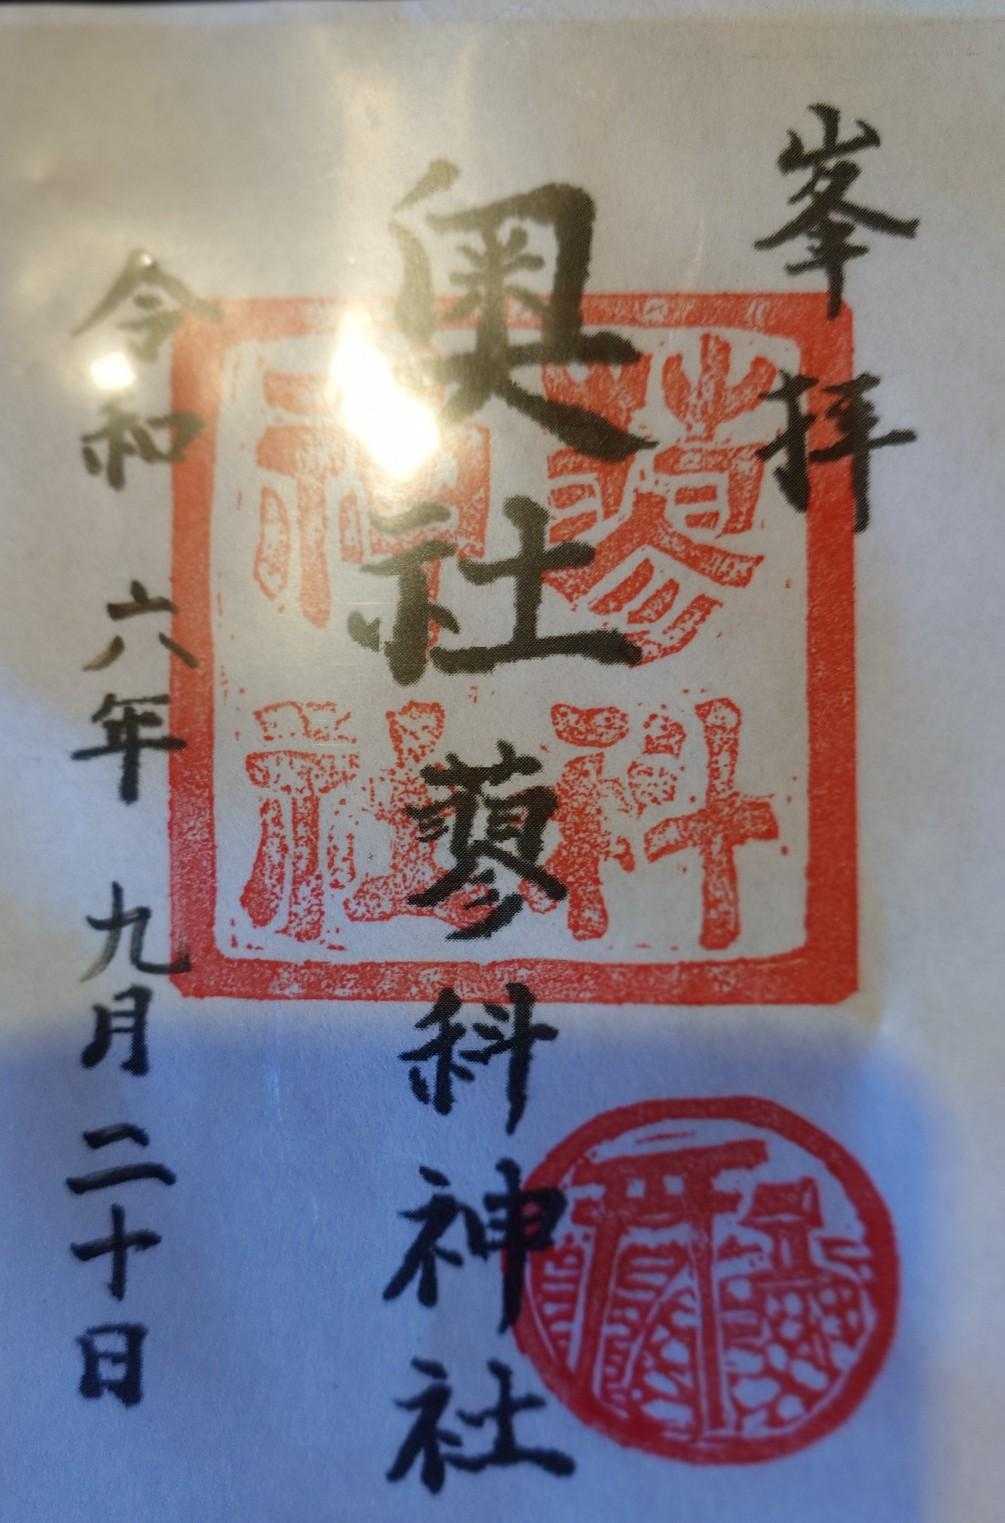 峯拝
奥社蓼科神社
令和六年九月二十日
蓼科
神社